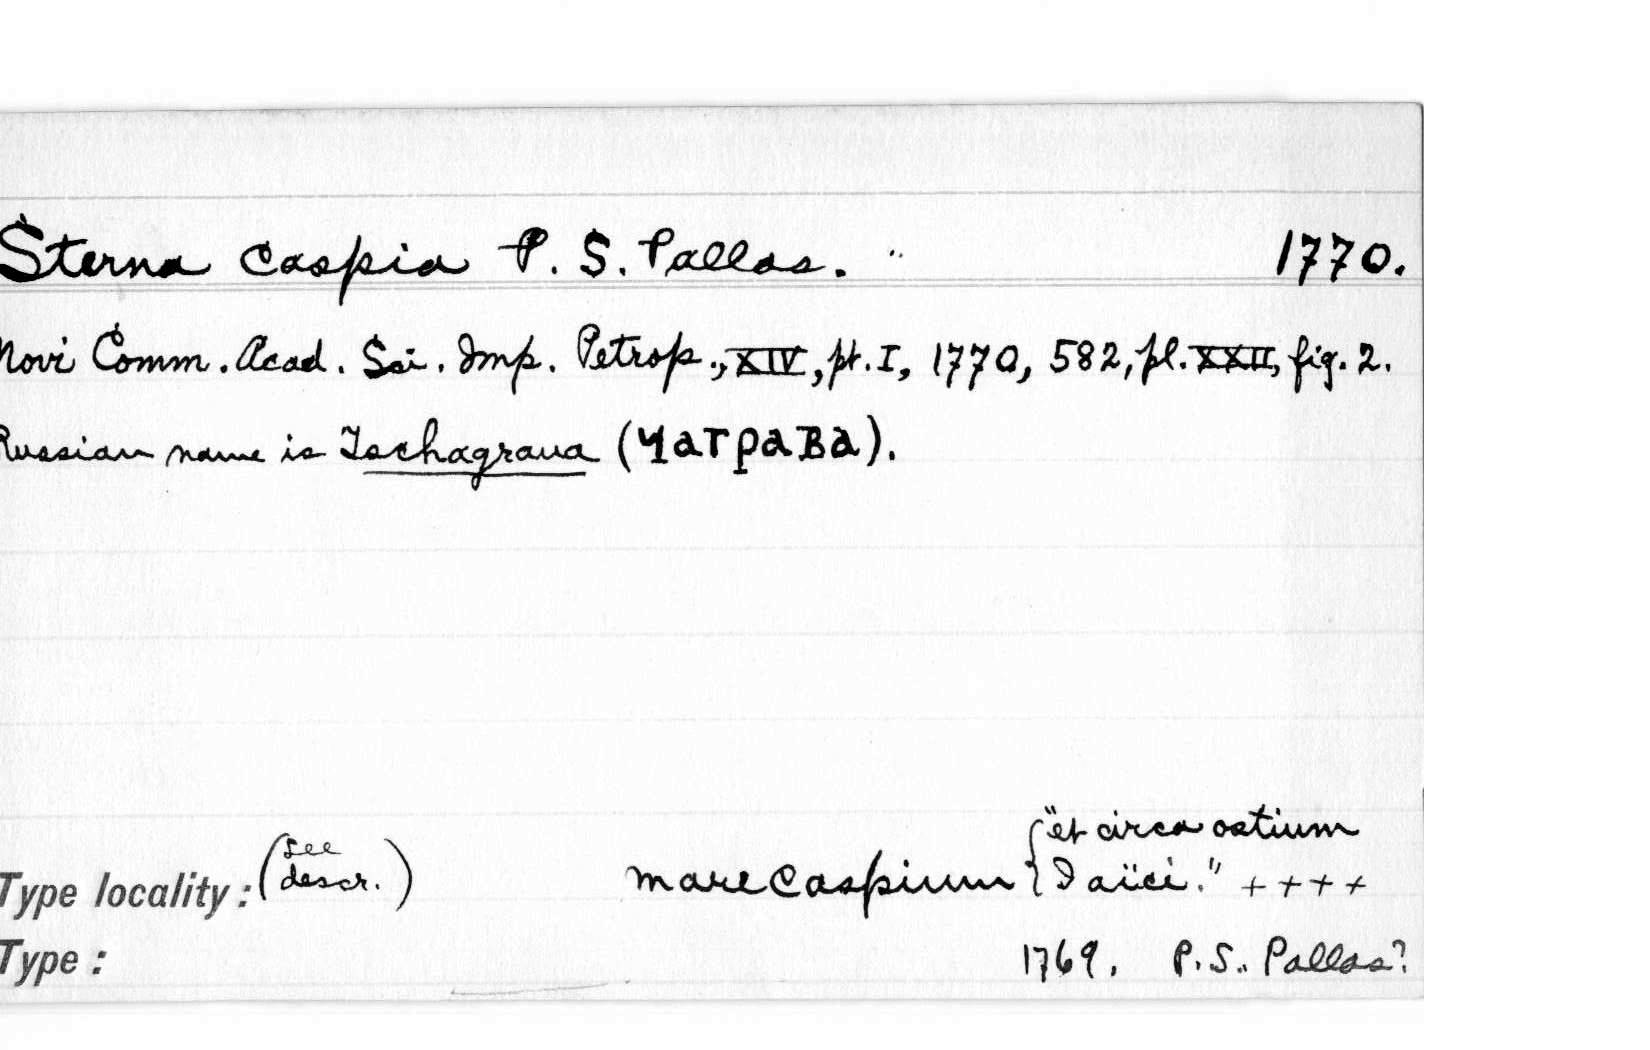 Sterna caspia P. S. Pallas. 1770.
Novi Comm. Acad. Sci. Imp. Petrop., XIV, pt. I, 1770, 582, pl. XXII, fig. 2.
Russian name is Tschagrava (Чаграва).
"et circa ostium
Type locality: (see descr.) mare Caspium Iaïci." ++++
Type: 1769. P. S. Pallas?